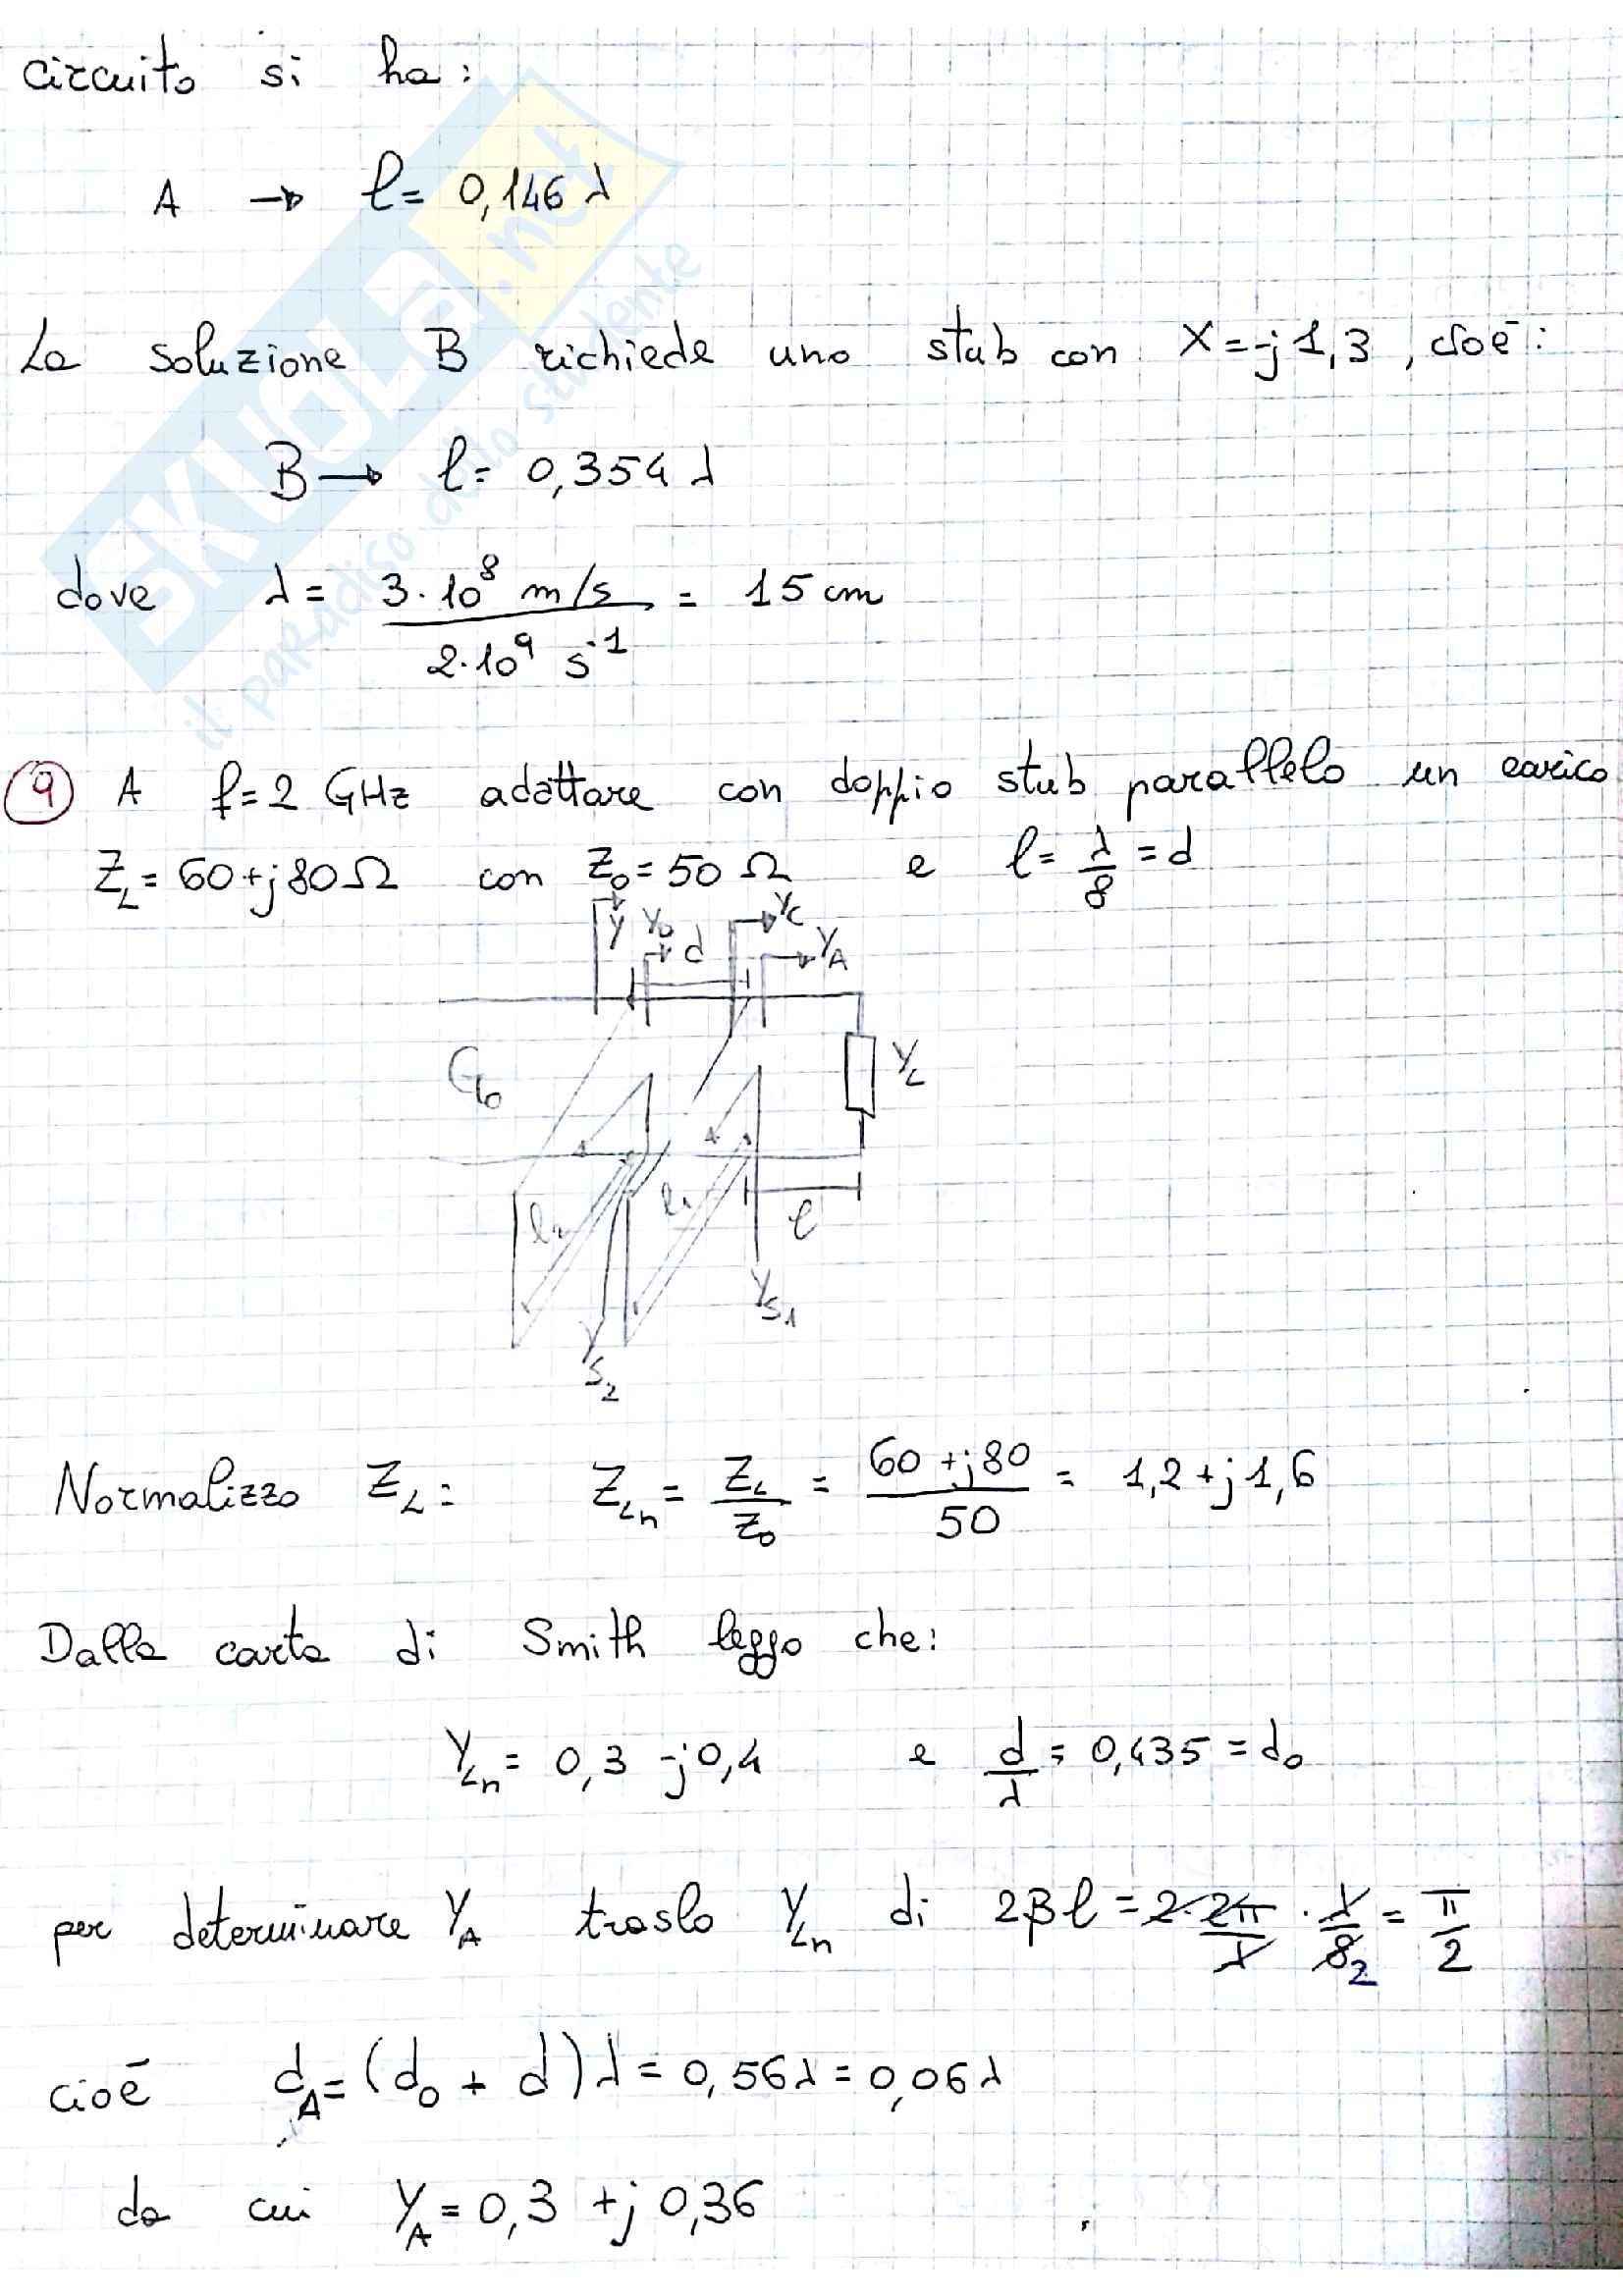 circuito si ha:
A → l = 0,146 λ
La soluzione B richiede uno stub con X = -j 1,3 , cioè:
B → l = 0,354 λ
dove λ = 3·10⁸ m/s / 2·10⁹ s⁻¹ = 15 cm
SKUOLA.net
il paradiso dello studente
9 A f = 2 GHz adattare con doppio stub parallelo un carico
Z_L = 60 + j 80 Ω con Z_0 = 50 Ω e l = λ/8 = d
Y Y_D d Y_C
Y_A
G_0 Y_L
l_2 l_1 l
Y_S1
Y_S2
Normalizzo Z_L: Z_Ln = Z_L/Z_0 = (60 + j 80)/50 = 1,2 + j 1,6
Dalla carta di Smith leggo che:
Y_Ln = 0,3 - j 0,4 e d/λ = 0,435 = d_0
per determinare Y_A traslo Y_Ln di 2βl = 2·2π/λ · λ/8 2 = π/2
cioè d_A = (d_0 + d) λ = 0,56 λ = 0,06 λ
da cui Y_A = 0,3 + j 0,36